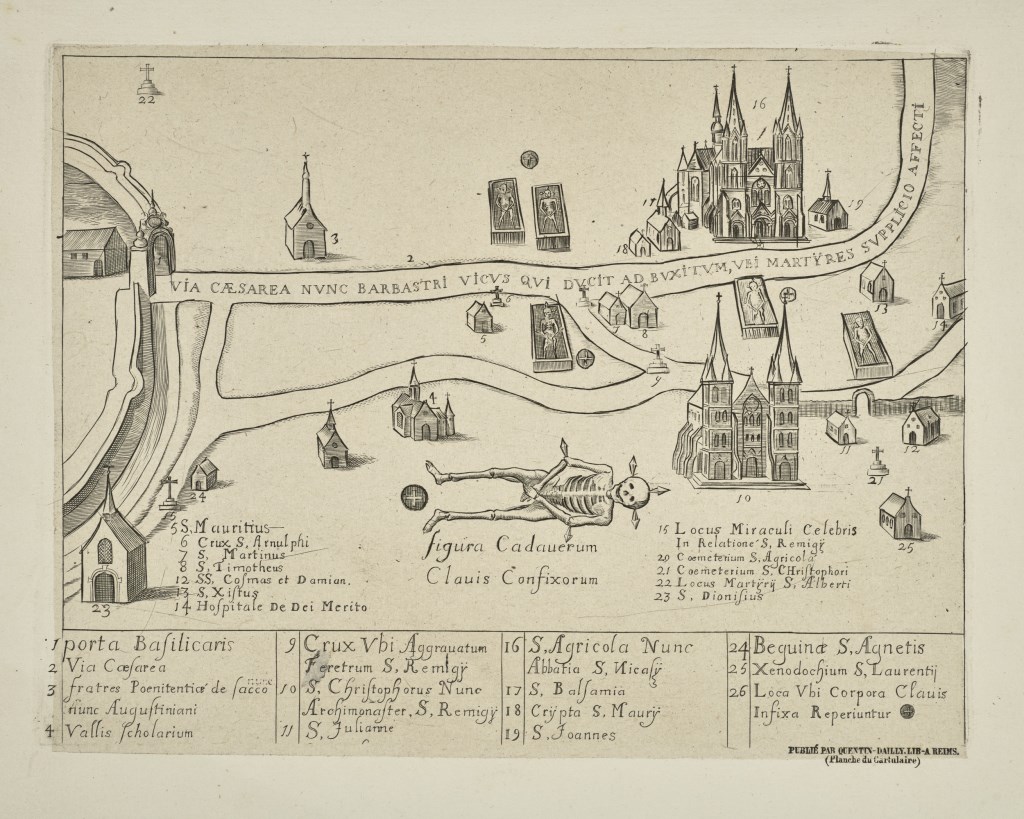 22
16
17
19
18
3
2
SVPPLICIO AFFECTI
VIA CÆSAREA NVNC BARBASTRI VICVS QVI DVCIT AD BVXITVM, VBI MARTŸRES
6
5
7
8
13
14
9
4
10
11
12
21
25
24
23
figura Cadauerum
Clauis Confixorum
5 S. Mauritius
6 Crux S, Arnulphi
7 S, Martinus
8 S, Timotheus
12 SS, Cosmas et Damian.
13 S, Xistus
14 Hospitale De Dei Merito
15 Locus Miraculi Celebris
In Relatione S, Remigÿ
20 Coemeterium S, Agricola
21 Coemeterium S, CHristophori
22 Locus Martÿrÿ S, Alberti
23 S, Dionisius
1 porta Basilicaris
2 Via Cæsarea
3 fratres Poenitentiæ de sacco nunc
nunc Augustiniani
4 Vallis scholarium
9 Crux Vbi Aggrauatum
Feretrum S, Remigÿ
10 S, Christophorus Nunc
Archimonaster, S, Remigÿ
11 S, Julianne
16 S, Agricola Nunc
Abbatia S, Nicasÿ
17 S, Balsamia
18 Crÿpta S, Maurÿ
19 S, Joannes
24 Beguinæ S, Agnetis
25 Xenodochium S, Laurentij
26 Loca Vbi Corpora Clauis
Infixa Reperiuntur
PUBLIÉ PAR QUENTIN-DAILLY. LIB-A REIMS.
(Planche du Cartulaire)